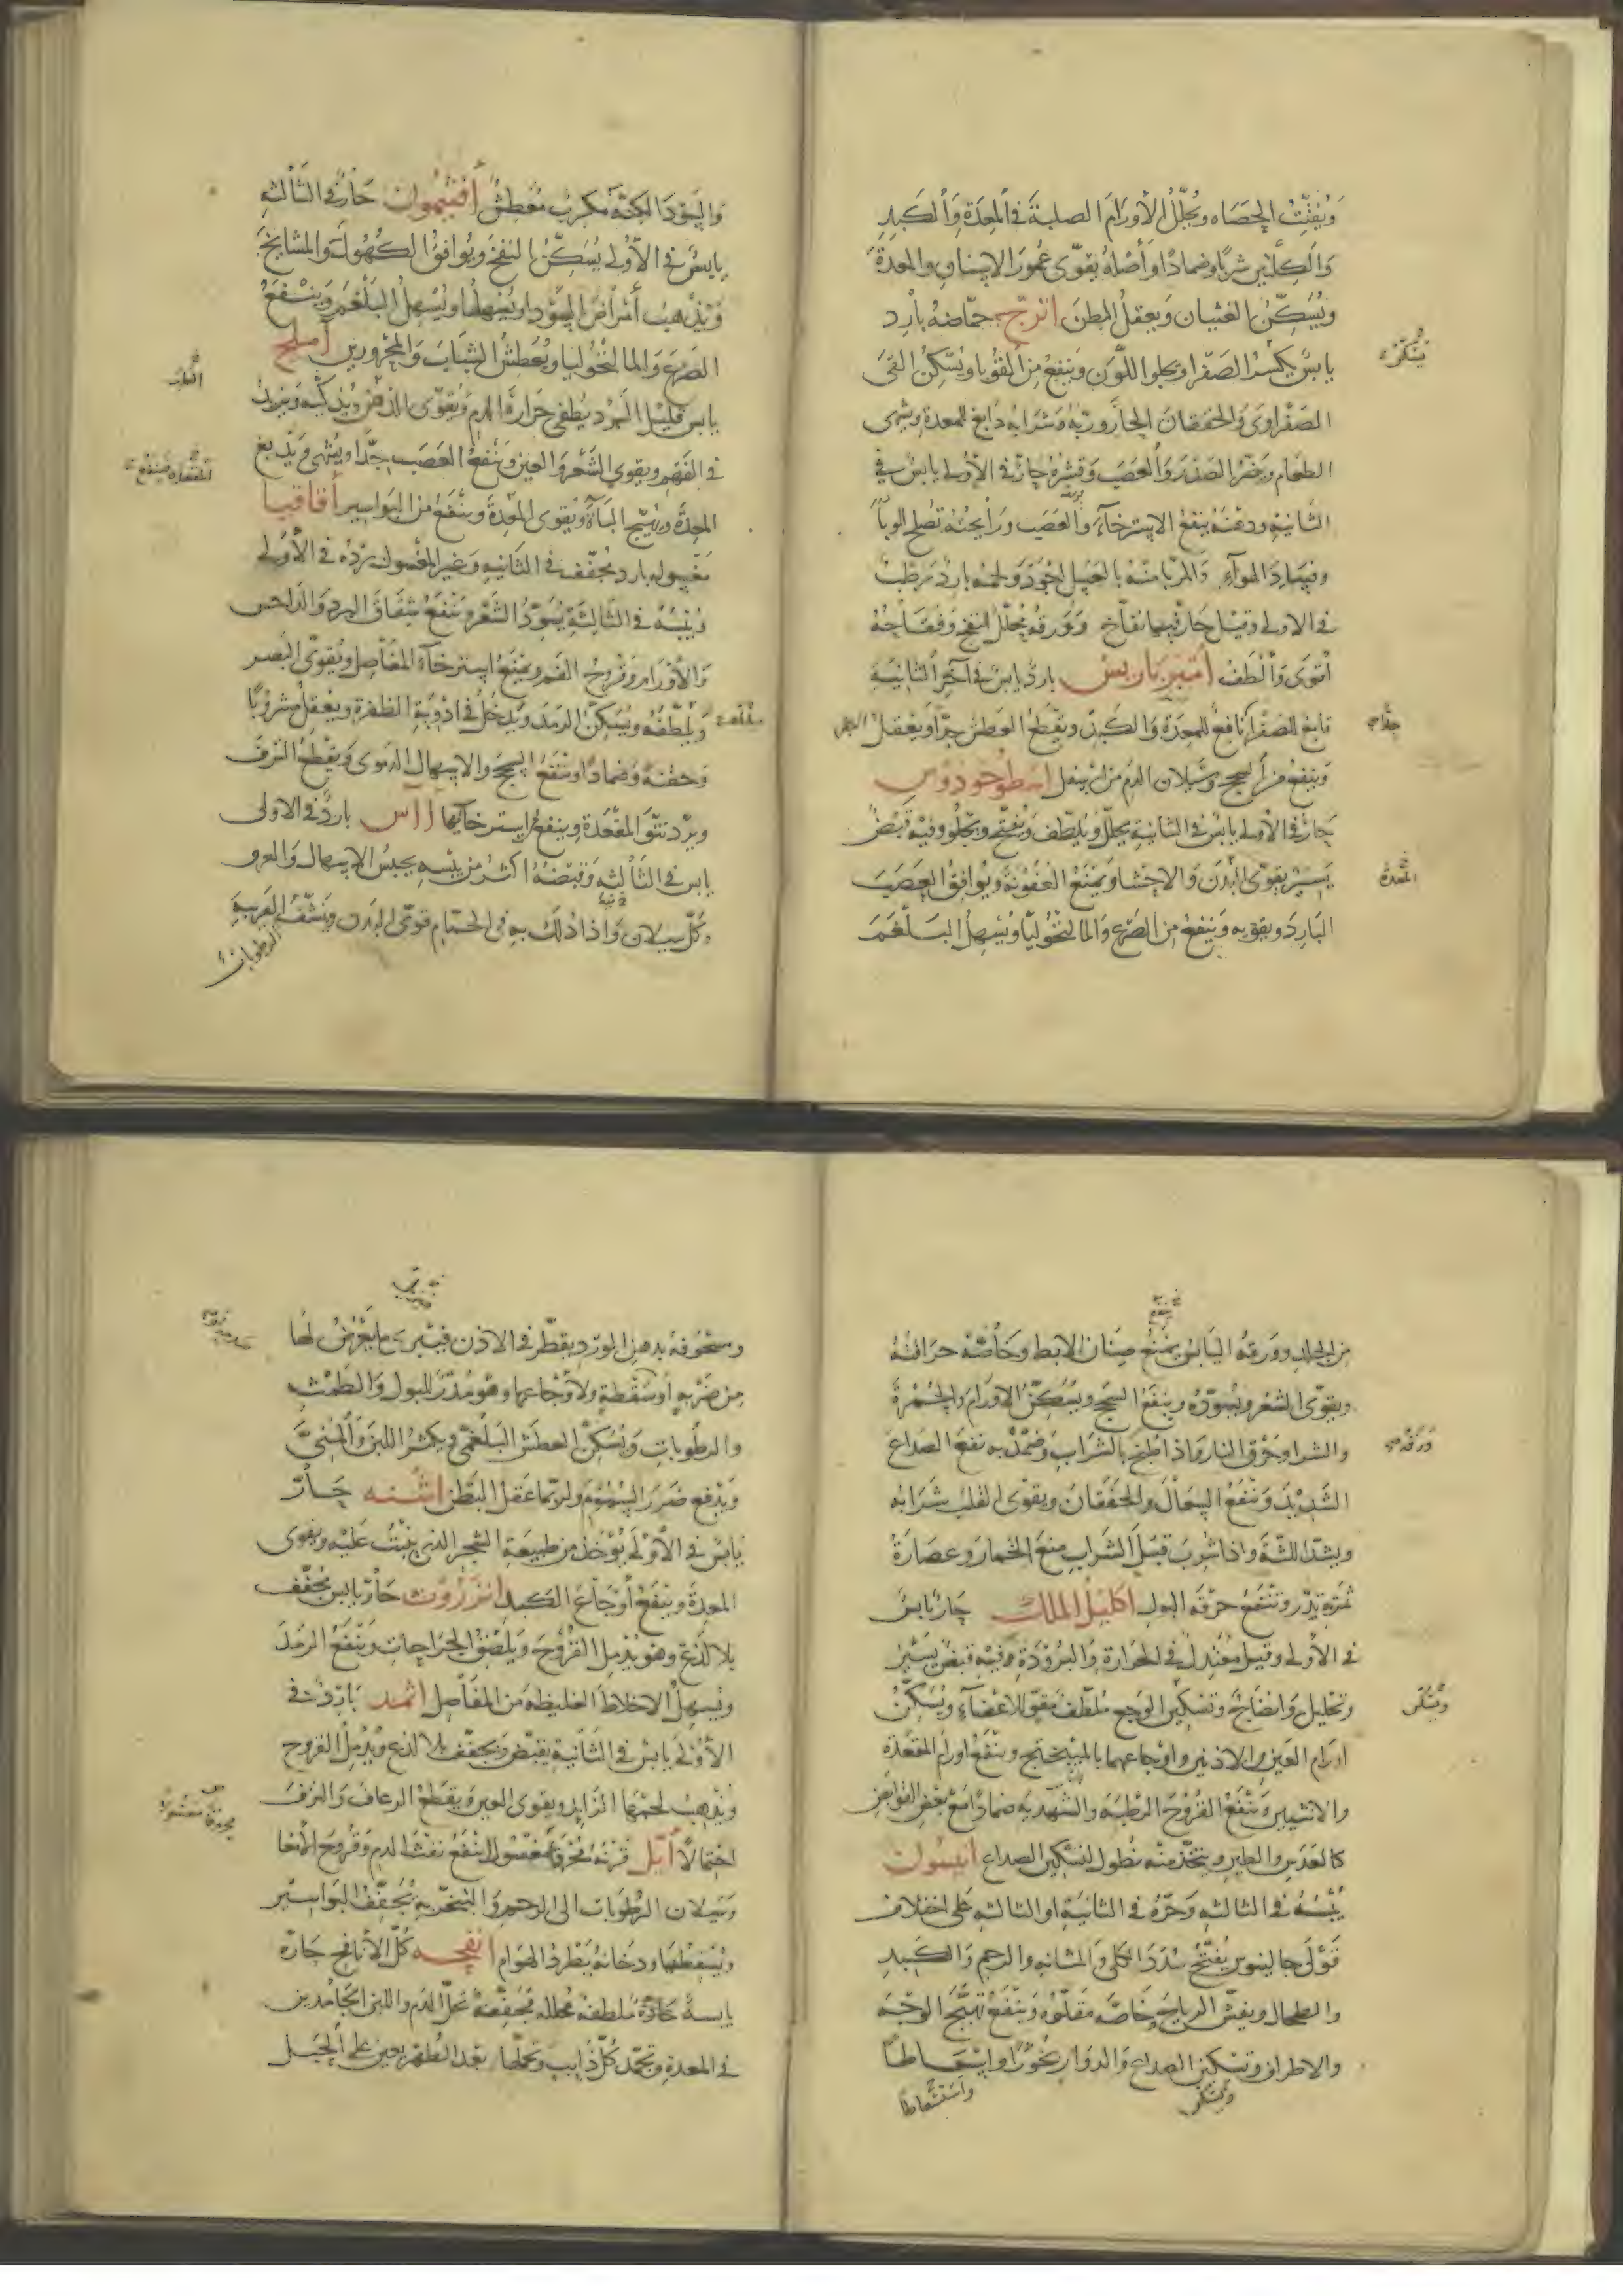 ويفتت الحصاه ويحلل الأورام الصلبة في المعدة والكبد
والكليتين شربا وضمادا وأصله يقوى عمور الاسنان والمعدة
ويسكن الغثيان ويعقل البطن اترج حماضه بارد
يابس يكسر الصفرا ويجلوا اللون وينفع من القوبا ويسكن القى
الصفراوى والخفقان الحار وربه وشرابه دابغ للمعدة ويشهى
الطعام ويضر الصدر والعصب وقشره حار في الأولى يابس في
الثانية ودهنه ينفع الاسترخآء والعصب ورايحته تصلح الوبا
وفساد الهوآء والمربا منه بالعسل اجود ولحمه بارد رطب
في الاولى وقيل حار فيها نفاخ وورقه يحلل النفخ وفقاحه
اقوى وألطف امبر باريس بارد يابس في آخر الثانية
قامع للصفرا نافع للمعدة والكبد ويقطع العطش جدا ويعقل
وينفع من السحج وسيلان الدم من اسفل اسطوخودوس
حار في الأولى يابس في الثانية يحلل ويلطف ويفتح ويجلو وفيه قبض
يسير يقوى البدن والاحشا ويمنع العفونة ويوافق العصب
البارد ويقويه وينفع من الصرع والمالنخوليا ويسهل البلغم
يسكن
المعدة
والسودا لكنه مكرب معطش أفتيمون حار في الثالثه
يابس في الأولى يسكن النفخ ويوافق الكهول والمشايخ
ويذهب أمراض السودا ويسهلها ويسهل البلغم وينفع
الصرع والمالنخوليا ويعطش الشباب والمحرورين املج
يابس قليل البرد يطفى حرارة الدم ويقوى الذهن ويذكيه ويزيد
في الفهم ويقوى الشعر والعين وينفع العصب جدا ويشهى ويدبغ
المعدة ويهيج الباة ويقوى المعدة وينفع من البواسير أقاقيا
مغسوله بارد مجفف في الثانية وغير المغسول برده في الأولى
ويبسه في الثالثة يسود الشعر وينفع شقاق البرد والداحس
والأورام وقروح الفم ويمنع استرخآء المفاصل ويقوى البصر
ويلطفه ويسكن الرمد ويدخل في ادوية الظفرة ويعقل مشروبا
وحقنة وضمادا وينفع السحج والاسهال الدموى ويقطع النزف
ويرد نتو المقعدة وينفع استرخآيها اآس بارد في الاولى
يابس في الثالثه وقبضه اكثر من يبسه يحبس الاسهال والعرق
وكل سيلان واذا دلك به في الحمام قوى البدن ونشف الغريبة
الرطوبات
القلب
من الجلد وورقه اليابس يمنع صنان الابط وخاصة حراقته
ويقوى الشعر ويسوده وينفع السحج ويسكن الاورام والحمرة
والشرا وحرق النار واذا طبخ بالشراب وضمد به نفع الصداع
الشديد وينفع السعال والخفقان ويقوى القلب شرابه
ويشد اللثة واذا شرب قبل الشراب منع الخمار وعصارة
ثمرته تدر وتنفع حرقة البول اكليل الملك حار يابس
في الأولى وقيل معتدل في الحرارة والبرودة وفيه قبض يسير
وتحليل وانضاج وتسكين الوجع ملطف مقو للاعضآء ويسكن
اورام العين والاذنين واوجاعهما بالميبختج وينفع اورام المقعدة
والانثيين وينفع القروح الرطبة والشهدية ضمادا مع بعض القوابض
كالعدس والطين ويتخذ منه نطول لتسكين الصداع انيسون
يبسه في الثالثه وحره في الثانية او الثالثه على اختلاف
قولى جالينوس يفتح سدد الكلى والمثانه والرحم والكبد
والطحال ويفش الرياح خاصة مقلوه وينفع تهيج الوجه
والاطراف وتسكين الصداع والدوار بخورا واسعاطا
ويسكن واستعاطا
ينفع
ورقه
ويسكن
وسحوقه بدهن الورد يقطر في الاذن فيبرى ما يعرض لها
من ضربه أو سقطة ولأوجاعها وهو مدر للبول والطمث
والرطوبات ويسكن العطش البلغمى ويكثر اللبن والمنى
ويدفع ضرر السموم ولربما عقل البطن اشنه حار
يابس في الأولى يؤخذ من طبيعة الشجر الذى ينبت عليه ويقوى
المعدة وينفع أوجاع الكبد انزروت حار يابس مجفف
بلا لذع وهو يدمل القروح ويلصق الجراحات وينفع الرمد
ويسهل الاخلاط الغليظة من المفاصل اثمد بارد في
الأولى يابس في الثانية يقبض ويجفف بلا لذع ويدمل القروح
ويذهب لحمها الزايد ويقوى العين ويقطع الرعاف والنزف
احتمالا أيل قرنه محرقا مغسولا ينفع نفث الدم وقروح الأمعا
وسيلان الرطوبات الى الرحم والتبخر به يجفف البواسير
ويسقطها ودخانه يطرد الهوام انفحه كل الأنافح حارة
يابسة حادة ملطفة محلله مجففة تحل الدم واللبن الجامدين
في المعدة وتجمد كل ذايب وتحملها بعد الطهر يعين على الحبل